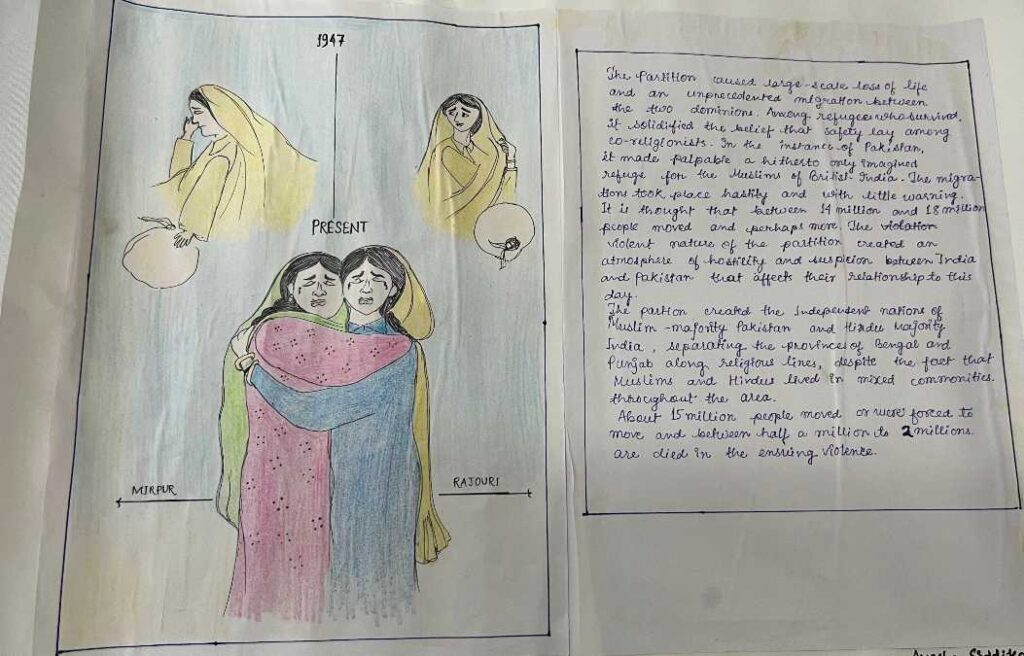 1947
PRESENT
MIRPUR
RAJOURI
The Partition caused large-scale loss of life
and an unprecedented migration between
the two dominions. Among refugees who survived,
it solidified the belief that safety lay among
co-religionists. In the instance of Pakistan,
it made palpable a hitherto only imagined
refuge for the Muslims of British India. The migra-
tions took place hastily and with little warning.
It is thought that between 14 million and 18 million
people moved and perhaps more. The violation
violent nature of the partition created an
atmosphere of hostility and suspicion between India
and Pakistan that affects their relationship to this
day.
The partion created the Independent nations of
Muslim-majority Pakistan and Hindu Majority
India, separating the provinces of Bengal and
Punjab along religious lines, despite the fact that
Muslims and Hindus lived in mixed commonities.
throughout the area.
About 15 million people moved or were forced to
move and between half a million to 2 millions
are died in the ensuing violence.